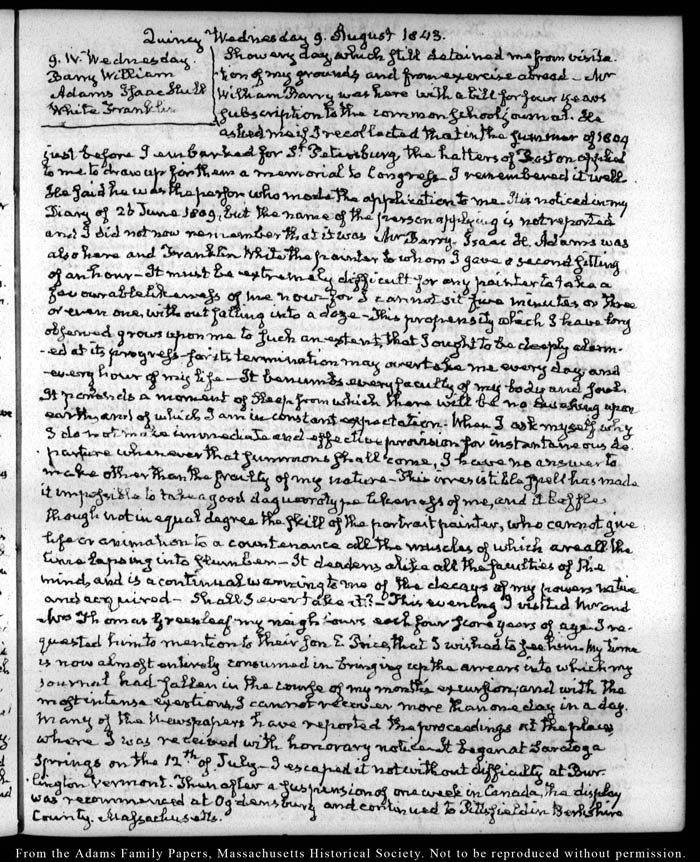 Quincy Wednesday 9. August 1843.
9. IV. Wednesday.
Barry William
Adams Isaac Hull
White Franklin
Showery day, which still detained me from visita-
tion of my grounds and from exercise abroad. Mr
William Barry was here with a bill for four years
subscription to the common School journal. He
asked me if I recollected that in the summer of 1809
just before I embarked for St. Petersburg, the hatters of Boston applied
to me to draw up for them a memorial to Congress. I remembered it well
He said he was the person who made the application to me. It is noticed in my
Diary of 26 June 1809, but the name of the person applying is not reported
and I did not now remember that it was Mr Barry. Isaac H. Adams was
also here and Franklin White the painter to whom I gave a second sitting
of an hour - It must be extremely difficult for any painter to take a
favourable likeness of me now - for I cannot sit five minutes or three
or even one, without falling into a doze - This propensity which I have long
observed grows upon me to such an extent, that I ought to be deeply alarm-
-ed at its progress - for its termination may overtake me every day and
every hour of my life - It benumbs every faculty of my body and soul
It portends a moment of sleep from which there will be no awaking upon
earth, and of which I am in constant expectation. When I ask myself why
I do not make immediate and effective provision for instantaneous de-
parture whenever that summons shall come, I have no answer to
make other than the frailty of my nature - This irresistible spell has made
it impossible to take a good daguerrotype likeness of me, and it baffles
though not in equal degree the skill of the portrait painter, who cannot give
life or animation to a countenance all the muscles of which are all the
time lapsing into slumber - It deadens alike all the faculties of the
mind, and is a continual warning to me of the decays of my powers native
and acquired - Shall I ever take it? - This evening I visited Mr and
Mrs Thomas Greenleaf my neighbours each four score years of age. I re-
quested him to mention to their son E. Price, that I wished to see him. My time
is now almost entirely consumed in bringing up the arrears into which my
journal had fallen in the course of my month's excursion; and with the
most intense exertions, I cannot recover more than one day in a day.
Many of the Newspapers have reported the proceedings at the places
where I was received with honorary notice - It began at Saratoga
Springs on the 12th of July - I escaped it not without difficulty at Bur-
lington Vermont. Then after a suspension of one week in Canada, the display
was recommenced at Ogdensburg and continued to Pittsfield in Berkshire
County, Massachusetts.
From the Adams Family Papers, Massachusetts Historical Society. Not to be reproduced without permission.